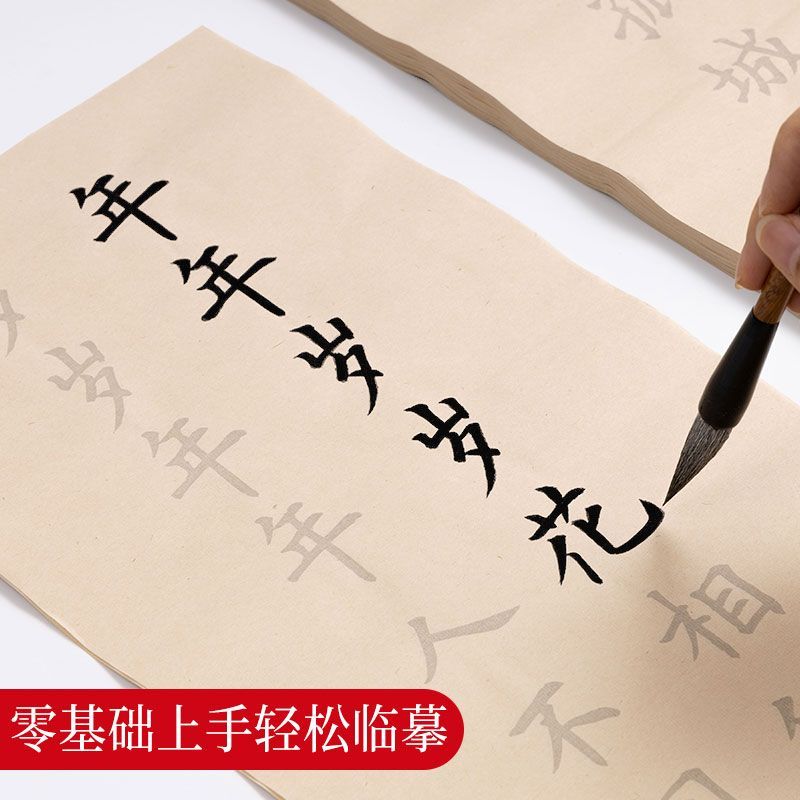 孤城
年年岁岁花相
岁年年人不
零基础上手轻松临摹